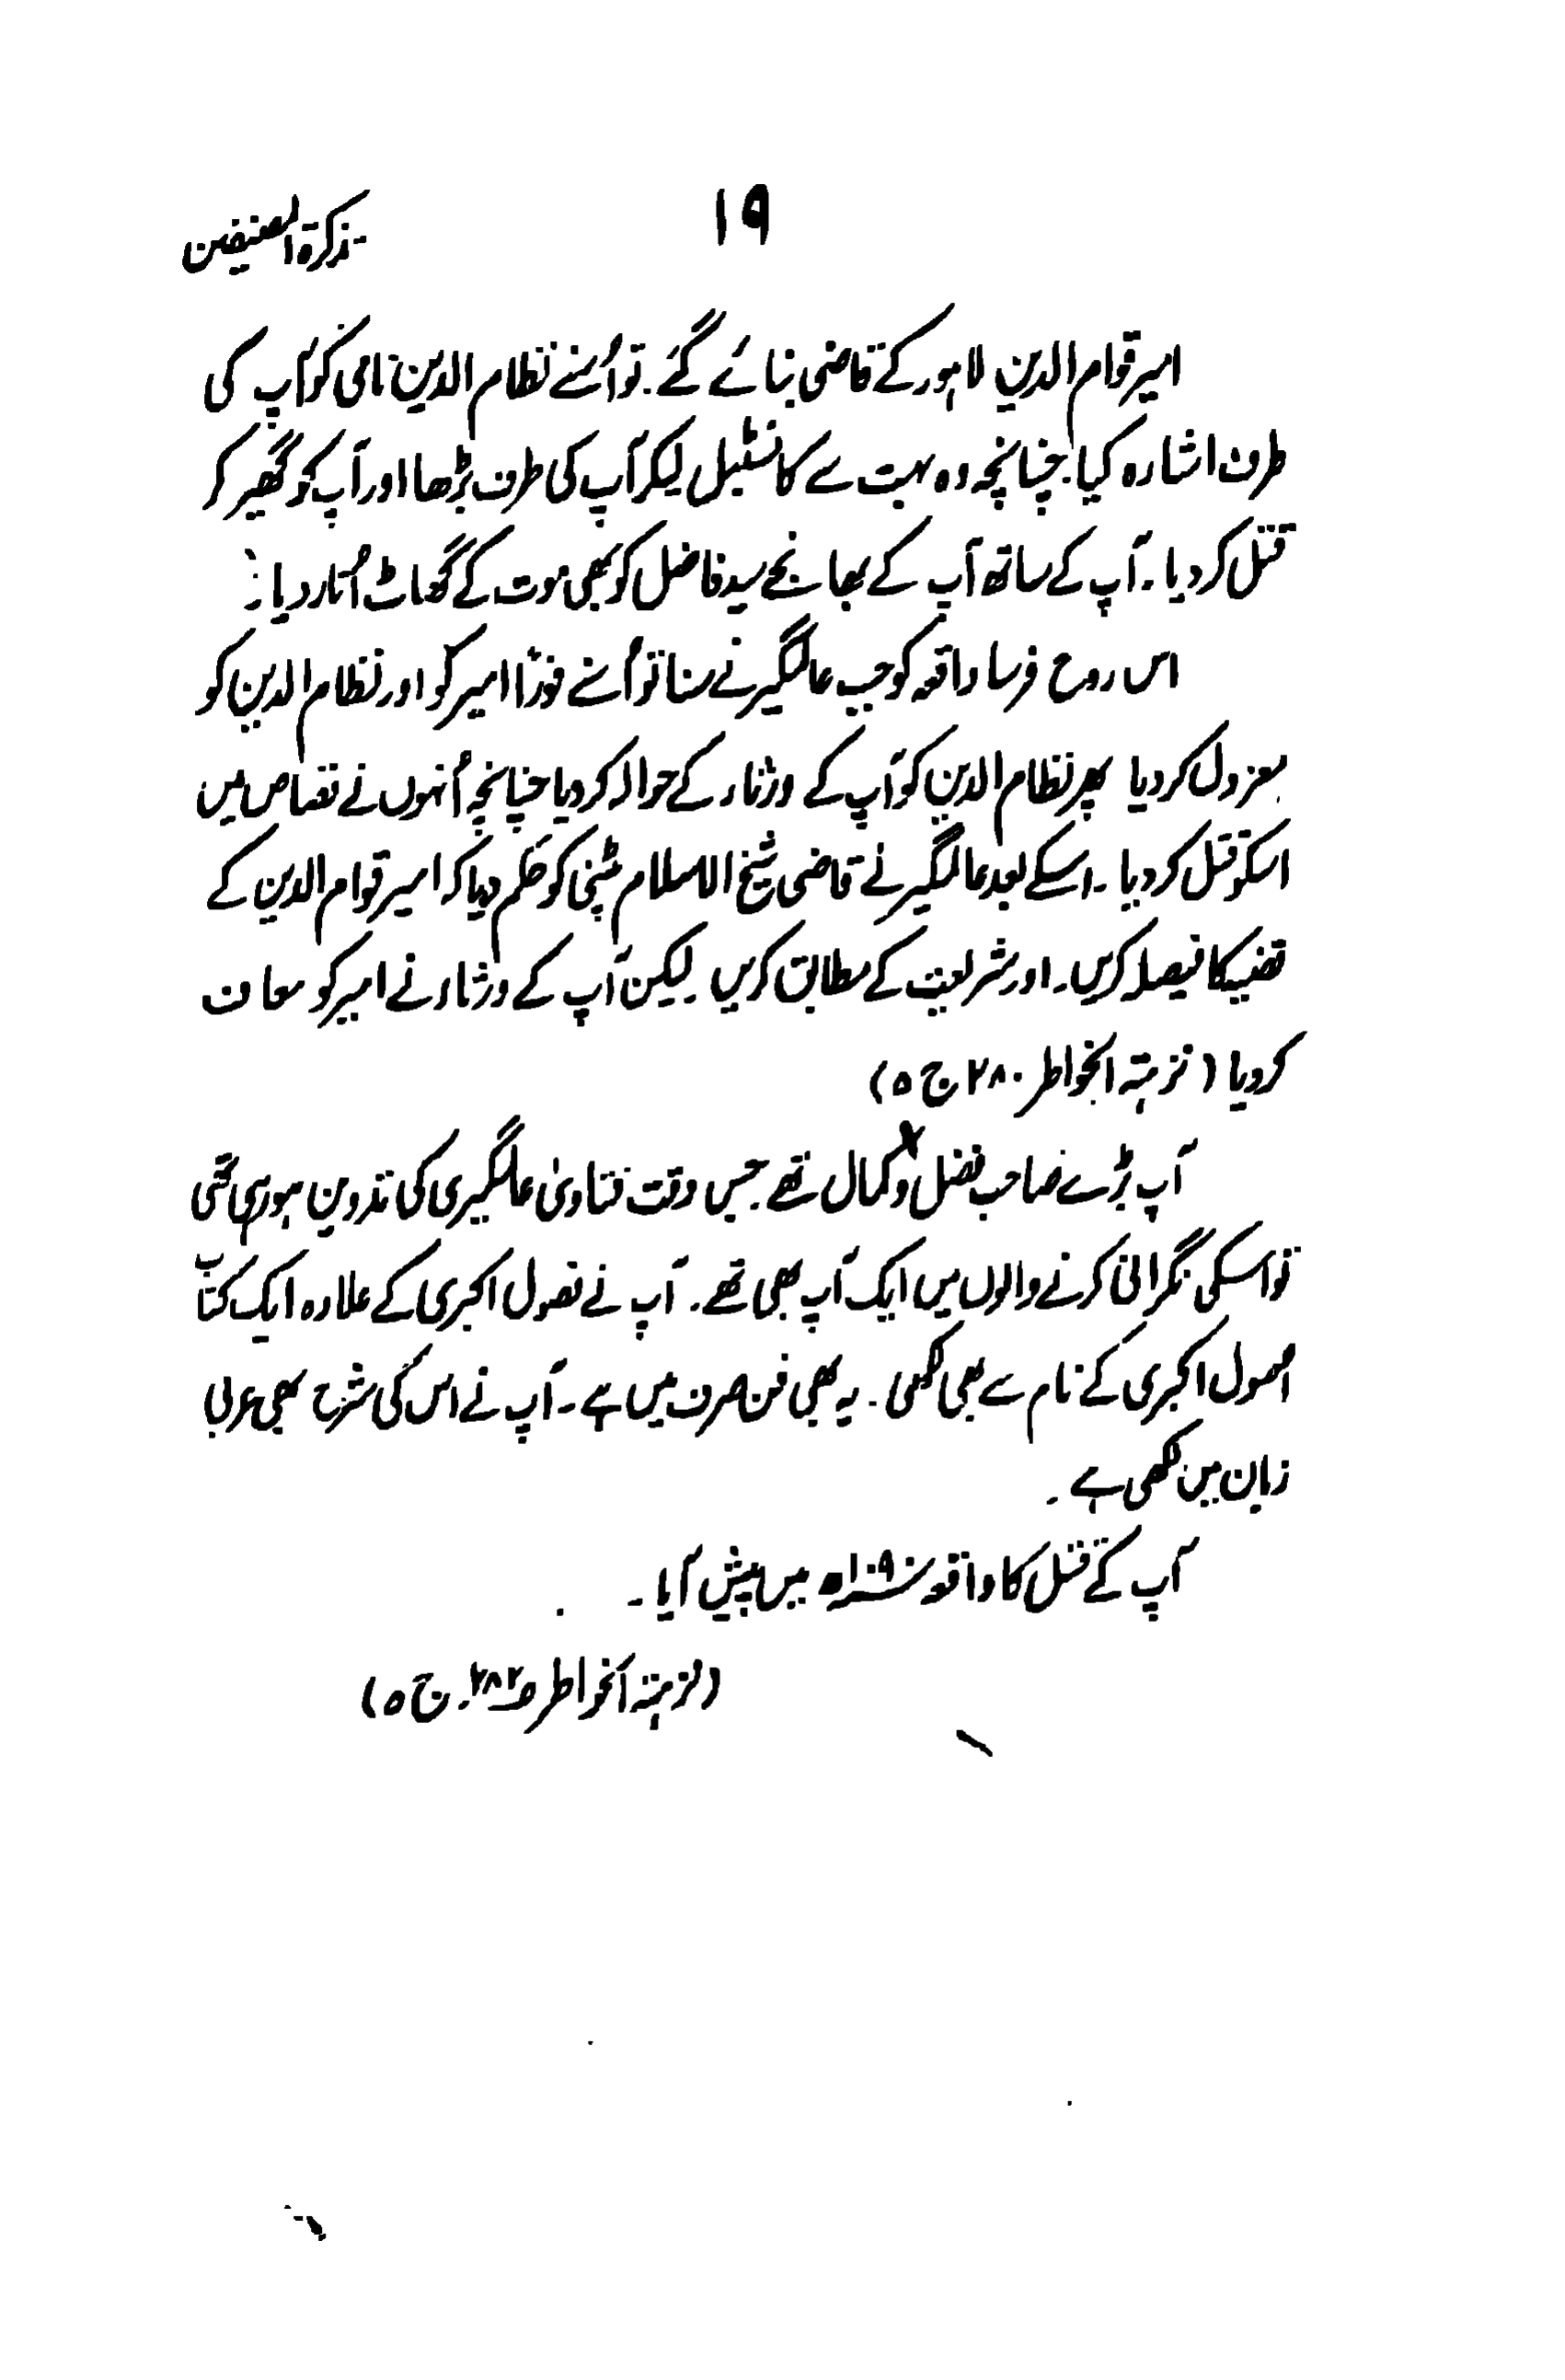 ۱۹
تذکرۃ المصنفین
امیر قوام الدین لاہور کے قاضی بنائے گئے. تو اُسنے نظام الدین نامی کو آپ کی
طرف اشارہ کیا. چنانچہ وہ بہت سے کانسٹیبل لیکر آپ کی طرف بڑھا اور آپ کو گھیر کر
قتل کر دیا۔ آپ کے ساتھ آپ کے بھانجے سید فاضل کو بھی موت کے گھاٹ اُتار دیا۔
اس روح فرسا واقعہ کو جب عالمگیر نے سنا تو اُسنے فورًا امیر کو اور نظام الدین کو
معزول کر دیا پھر نظام الدین کو آپ کے ورثاء کے حوالہ کر دیا چنانچہ اُنہوں نے قصاص میں
اسکو قتل کر دیا۔ اسکے بعد عالمگیر نے قاضی شیخ الاسلام پٹنی کو حکم دیا کہ امیر قوام الدین کے
قضیہ کا فیصلہ کریں۔ اور شریعت کے مطابق کریں لیکن آپ کے ورثاء نے امیر کو معاف
کر دیا (نزہتہ الخواطر ۲۸۰ ج ۵)
آپ بڑے صاحب فضل و کمال تھے جس وقت فتاویٰ عالمگیری کی تدوین ہو رہی تھی
تو اسکی نگرانی کرنے والوں میں ایک آپ بھی تھے۔ آپ نے فصول اکبری کے علاوہ ایک کتاب
اصول اکبری کے نام سے بھی لکھی۔ یہ بھی فن صرف میں ہے۔ آپ نے اس کی شرح بھی عربی
زبان میں لکھی ہے۔
آپ کے قتل کا واقعہ ۱۰۹۰ھ میں پیش آیا۔
(نزہتہ الخواطر ص۲۸۲ ج ۵)